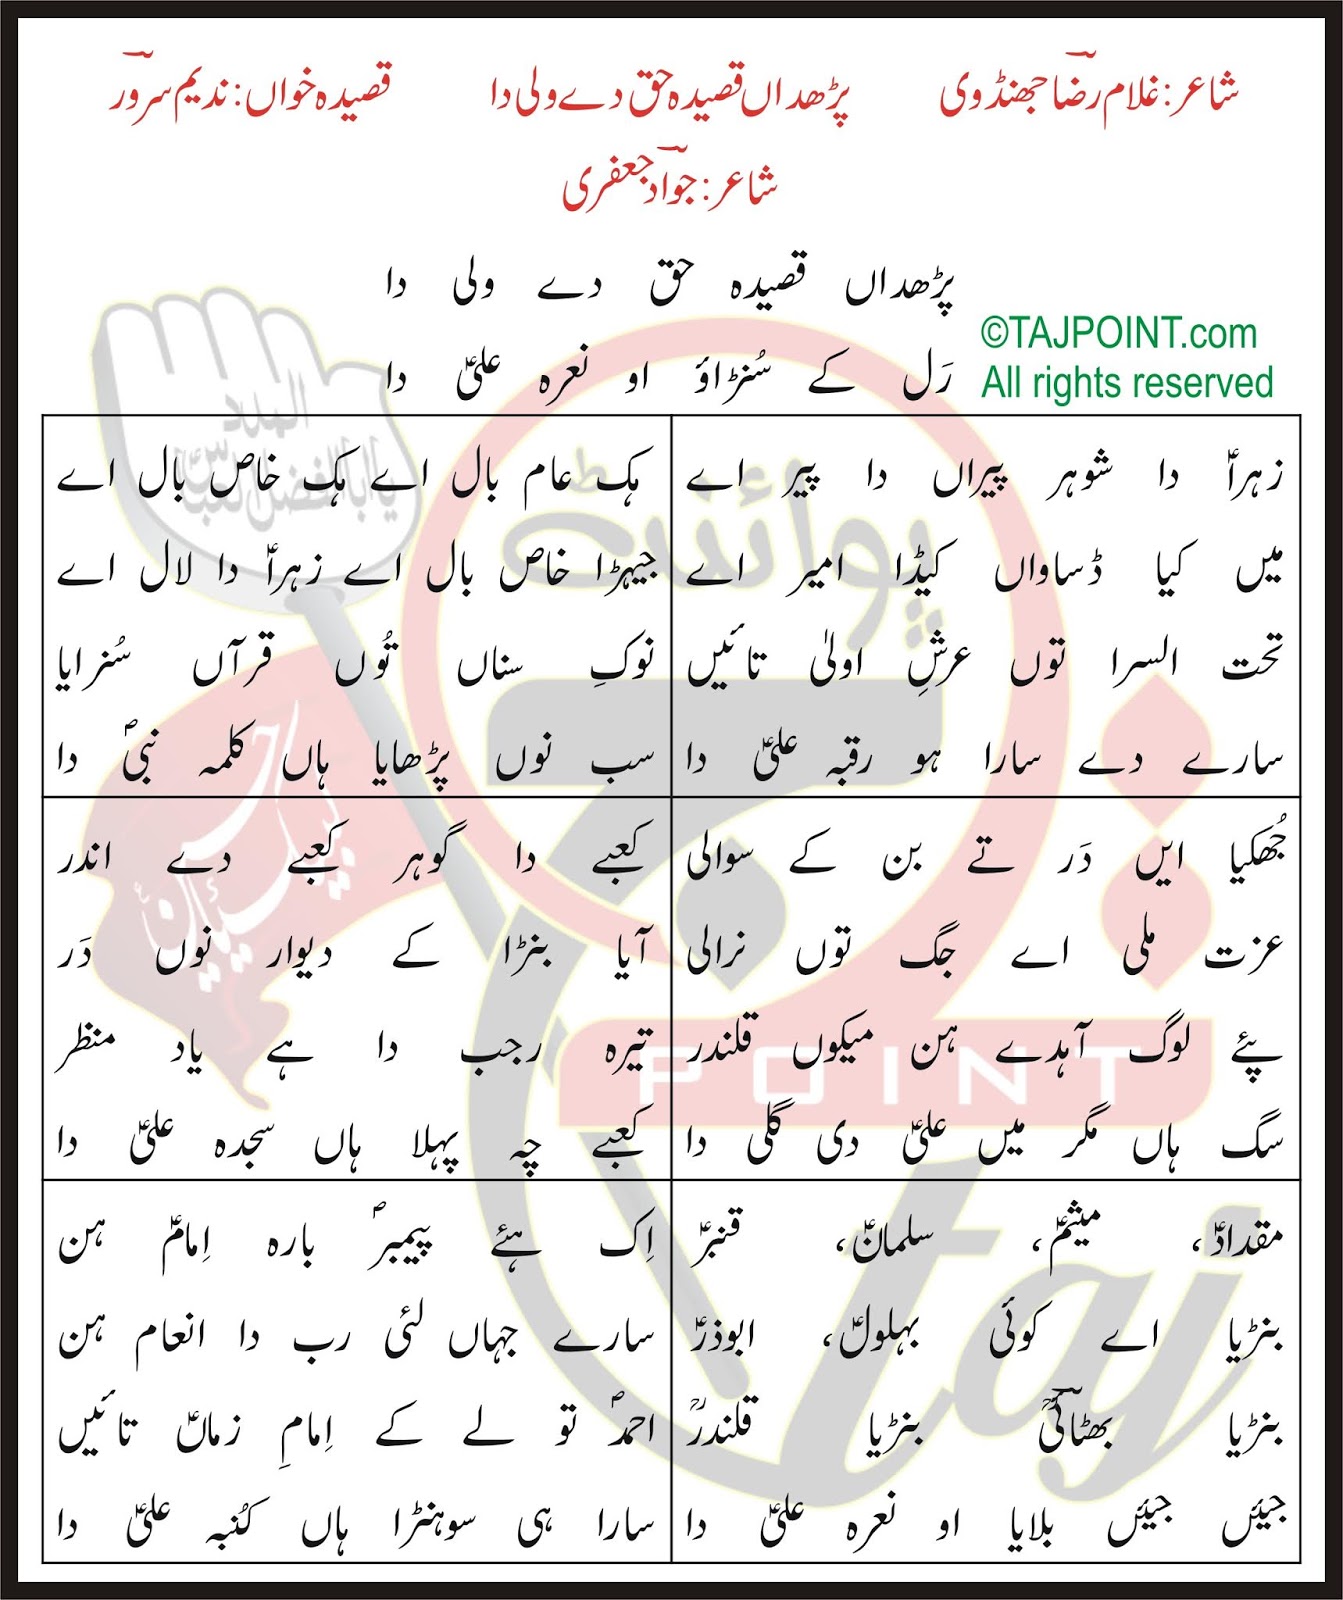 شاعر: غلام رضا جھنڈوی پڑھداں قصیدہ حق دے ولی دا قصیدہ خواں: ندیم سرور
شاعر: جواد جعفری
پڑھداں قصیدہ حق دے ولی دا
رَل کے سُنڑاؤ او نعرہ علیؑ دا
©TAJPOINT.com
All rights reserved
زہراؑ دا شوہر پیراں دا پیر اے
میں کیا ڈساواں کیڈا امیر اے
تحت السرا توں عرشِ اولیٰ تائیں
سارے دے سارا ہو رقبہ علیؑ دا
ہک عام بال اے ہک خاص بال اے
جیہڑا خاص بال اے زہراؑ دا لال اے
نوکِ سناں تُوں قرآں سُنرایا
سب نوں پڑھایا ہاں کلمہ نبیؐ دا
جُھکیا ایں دَر تے بن کے سوالی
عزت ملی اے جگ توں نرالی
پئے لوگ آہدے ہن میکوں قلندر
سگ ہاں مگر میں علیؑ دی گلی دا
کعبے دا گوہر کعبے دے اندر
آیا بنڑا کے دیوار نوں دَر
تیرہ رجب دا ہے یاد منظر
کعبے چہ پہلا ہاں سجدہ علیؑ دا
مقدادؑ، میثمؑ، سلمانؑ، قنبرؑ
بنڑیا اے کوئی بہلولؑ، ابوذرؑ
بنڑیا بھٹائیؒ بنڑیا قلندرؒ
جیئں جیئں بلایا او نعرہ علیؑ دا
اِک ہئے پیمبرؐ بارہ اِمامؑ ہن
سارے جہاں لئی رب دا انعام ہن
احمدؐ تو لے کے اِمامِ زماںؑ تائیں
سارا ہی سوہنڑا ہاں کُنبہ علیؑ دا
المدد
یا ابالفضل العباسؑ
لبیک یا حسینؑ
تاج پوائنٹ
POINT
taj